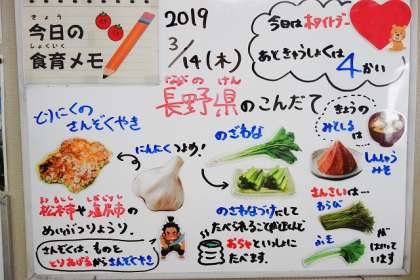 きょう
今日の
しょくいく
食育メモ
2019
3/14(木)
今日はホワイトデー
あときゅうしょくは
4かい
ながの けん
長野県のこんだて
とりにくの
さんぞくやき
にんにくつよめ!
まつもとし しおじりし
松本市や塩尻市の
めいぶつりょうり。
さんぞくは、ものを
とりあげるからさんぞくやき
のざわな
のざわなづけにして
たべられることがほとんど
おちゃといっしょに
たべます。
きょうの
みそしるは
しんしゅう
みそ
さんさいは…
わらび
ふき
が
はいって
います